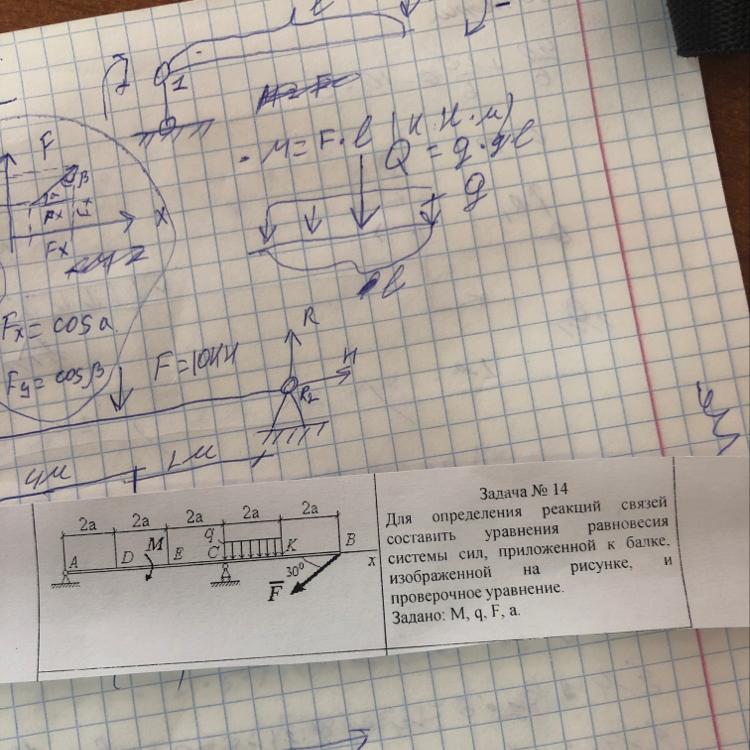 l
1
M = F · l (к.Н.м)
Q = q · l
F
β
q
Fx
X
Fx
l
Fx = cos α
Fy = cos β
F = 10кН
R
H
R2
4м
1м
2a 2a 2a 2a 2a
q
A D M E C K B x
30°
F
Задача № 14
Для определения реакций связей
составить уравнения равновесия
системы сил, приложенной к балке,
изображенной на рисунке, и
проверочное уравнение.
Задано: M, q, F, a.